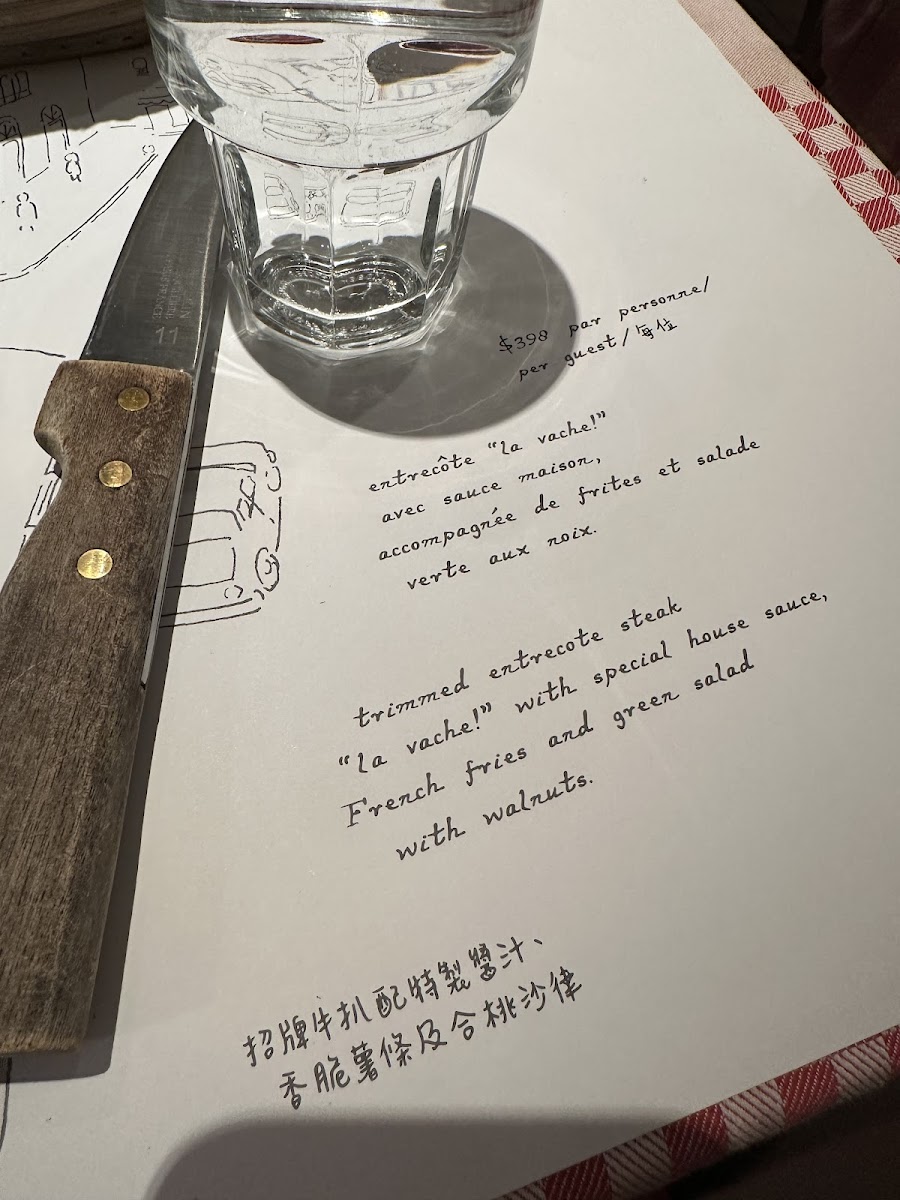 $398 par personne/
per guest/每位
entrecôte “la vache!”
avec sauce maison,
accompagnée de frites et salade
verte aux noix.
trimmed entrecote steak
“la vache!” with special house sauce,
French fries and green salad
with walnuts.
招牌牛扒配特製醬汁、
香脆薯條及合桃沙律
11